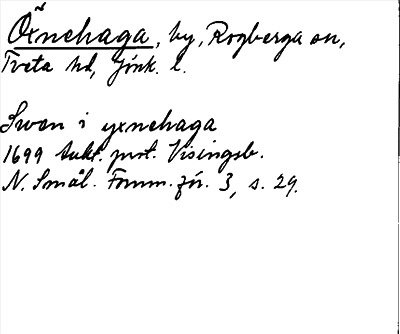 Öxnehaga, by, Rogberga sn,
Tveta hd, Jönk. l.
Swen i yxnehaga
1699 Aukt. prot. Visingsb.
N. Smål. Fornm.för. 3, s. 29.